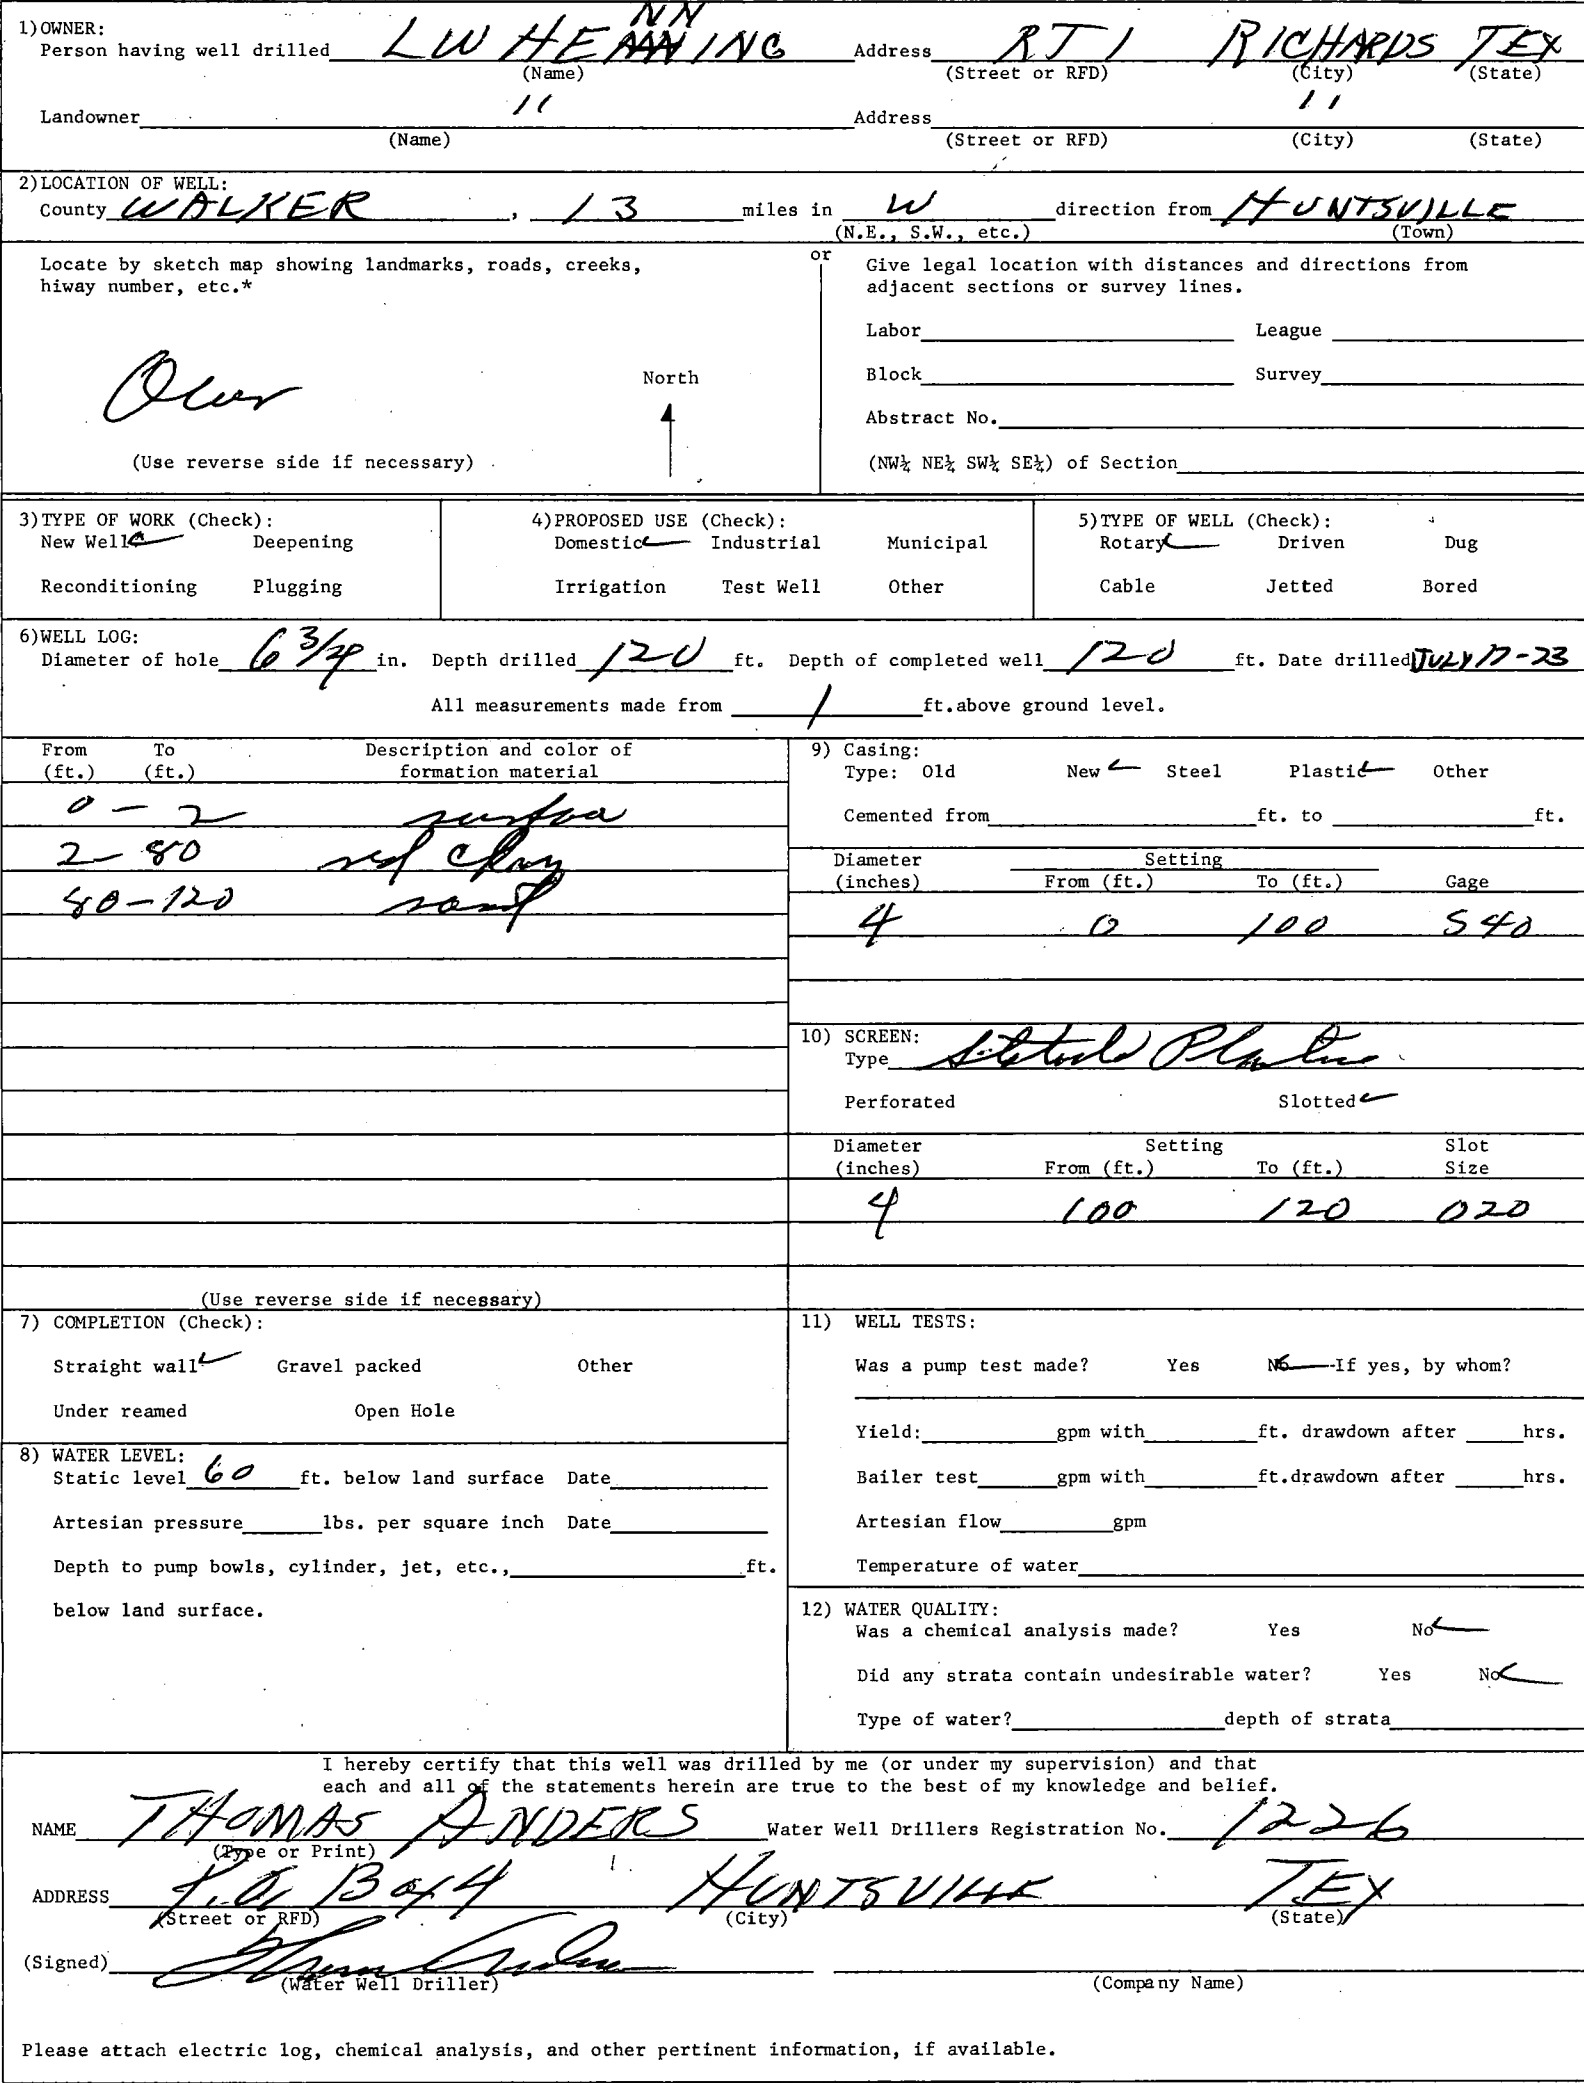 1)OWNER:
Person having well drilled LW HENNING Address RT 1 RICHARDS TEX
(Name) (Street or RFD) (City) (State)
Landowner " Address "
(Name) (Street or RFD) (City) (State)
2)LOCATION OF WELL:
County WALKER , 13 miles in W direction from HUNTSVILLE
(N.E., S.W., etc.) (Town)
Locate by sketch map showing landmarks, roads, creeks,
hiway number, etc.*
Over
North
(Use reverse side if necessary)
or
Give legal location with distances and directions from
adjacent sections or survey lines.
Labor League
Block Survey
Abstract No.
(NW¼ NE¼ SW¼ SE¼) of Section
3)TYPE OF WORK (Check):
New Well ✓ Deepening
Reconditioning Plugging
4)PROPOSED USE (Check):
Domestic ✓ Industrial Municipal
Irrigation Test Well Other
5)TYPE OF WELL (Check):
Rotary ✓ Driven Dug
Cable Jetted Bored
6)WELL LOG:
Diameter of hole 6 3/4 in. Depth drilled 120 ft. Depth of completed well 120 ft. Date drilled JULY 17-23
All measurements made from 1 ft.above ground level.
From To Description and color of
(ft.) (ft.) formation material
0 - 2
2 - 80 red clay
80-120 sand
(Use reverse side if necessary)
9) Casing:
Type: Old New ✓ Steel Plastic ✓ Other
Cemented from ft. to ft.
Diameter Setting
(inches) From (ft.) To (ft.) Gage
4 0 100 S40
10) SCREEN:
Type Plastic
Perforated Slotted ✓
Diameter Setting Slot
(inches) From (ft.) To (ft.) Size
4 100 120 020
7) COMPLETION (Check):
Straight wall ✓ Gravel packed Other
Under reamed Open Hole
8) WATER LEVEL:
Static level 60 ft. below land surface Date
Artesian pressure lbs. per square inch Date
Depth to pump bowls, cylinder, jet, etc., ft.
below land surface.
11) WELL TESTS:
Was a pump test made? Yes No ✓ If yes, by whom?
Yield: gpm with ft. drawdown after hrs.
Bailer test gpm with ft.drawdown after hrs.
Artesian flow gpm
Temperature of water
12) WATER QUALITY:
Was a chemical analysis made? Yes No ✓
Did any strata contain undesirable water? Yes No ✓
Type of water? depth of strata
I hereby certify that this well was drilled by me (or under my supervision) and that
each and all of the statements herein are true to the best of my knowledge and belief.
NAME THOMAS ANDERS Water Well Drillers Registration No. 1226
(Type or Print)
ADDRESS P.O. Box 4 HUNTSVILLE TEX
(Street or RFD) (City) (State)
(Signed) Thomas Anders
(Water Well Driller) (Company Name)
Please attach electric log, chemical analysis, and other pertinent information, if available.